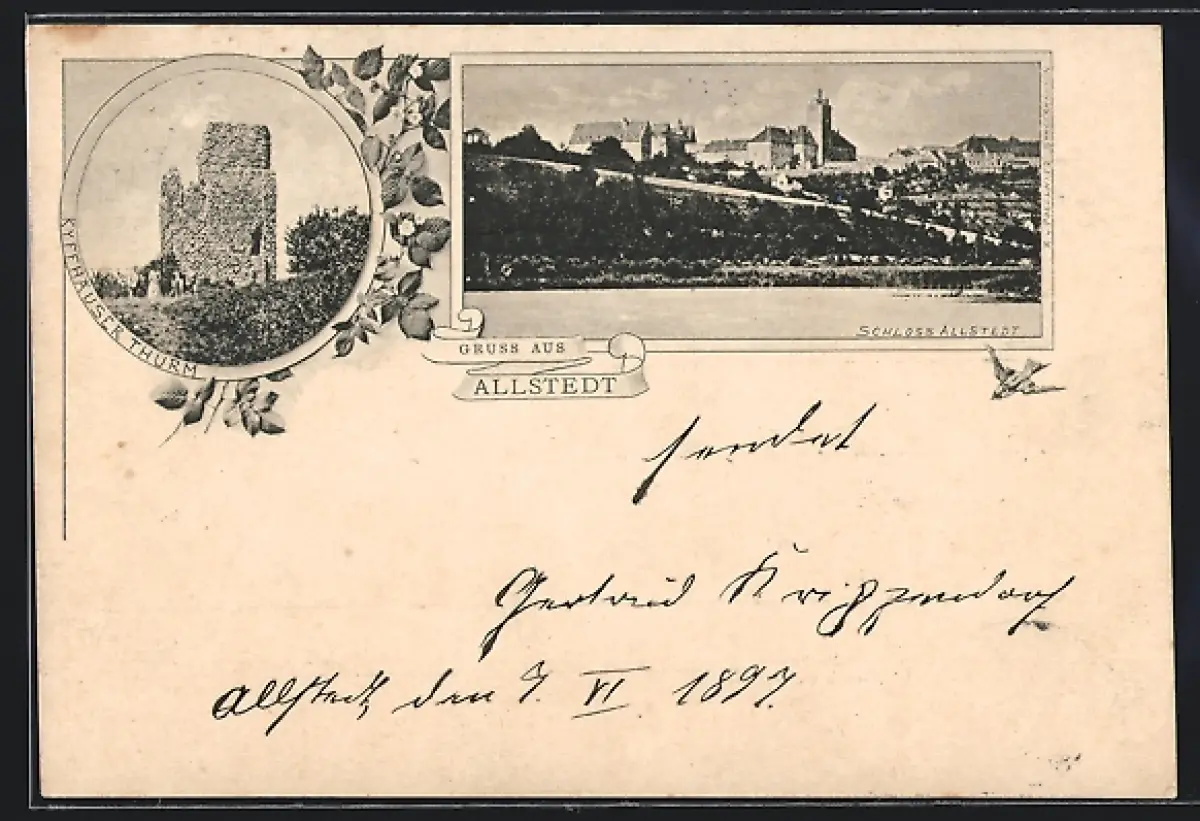 KYFFHÄUSER THURM
SCHLOSS ALLSTEDT
GRUSS AUS
ALLSTEDT
sendet
Gertrud Krippendorf
Allstedt, den 7. VI. 1897.